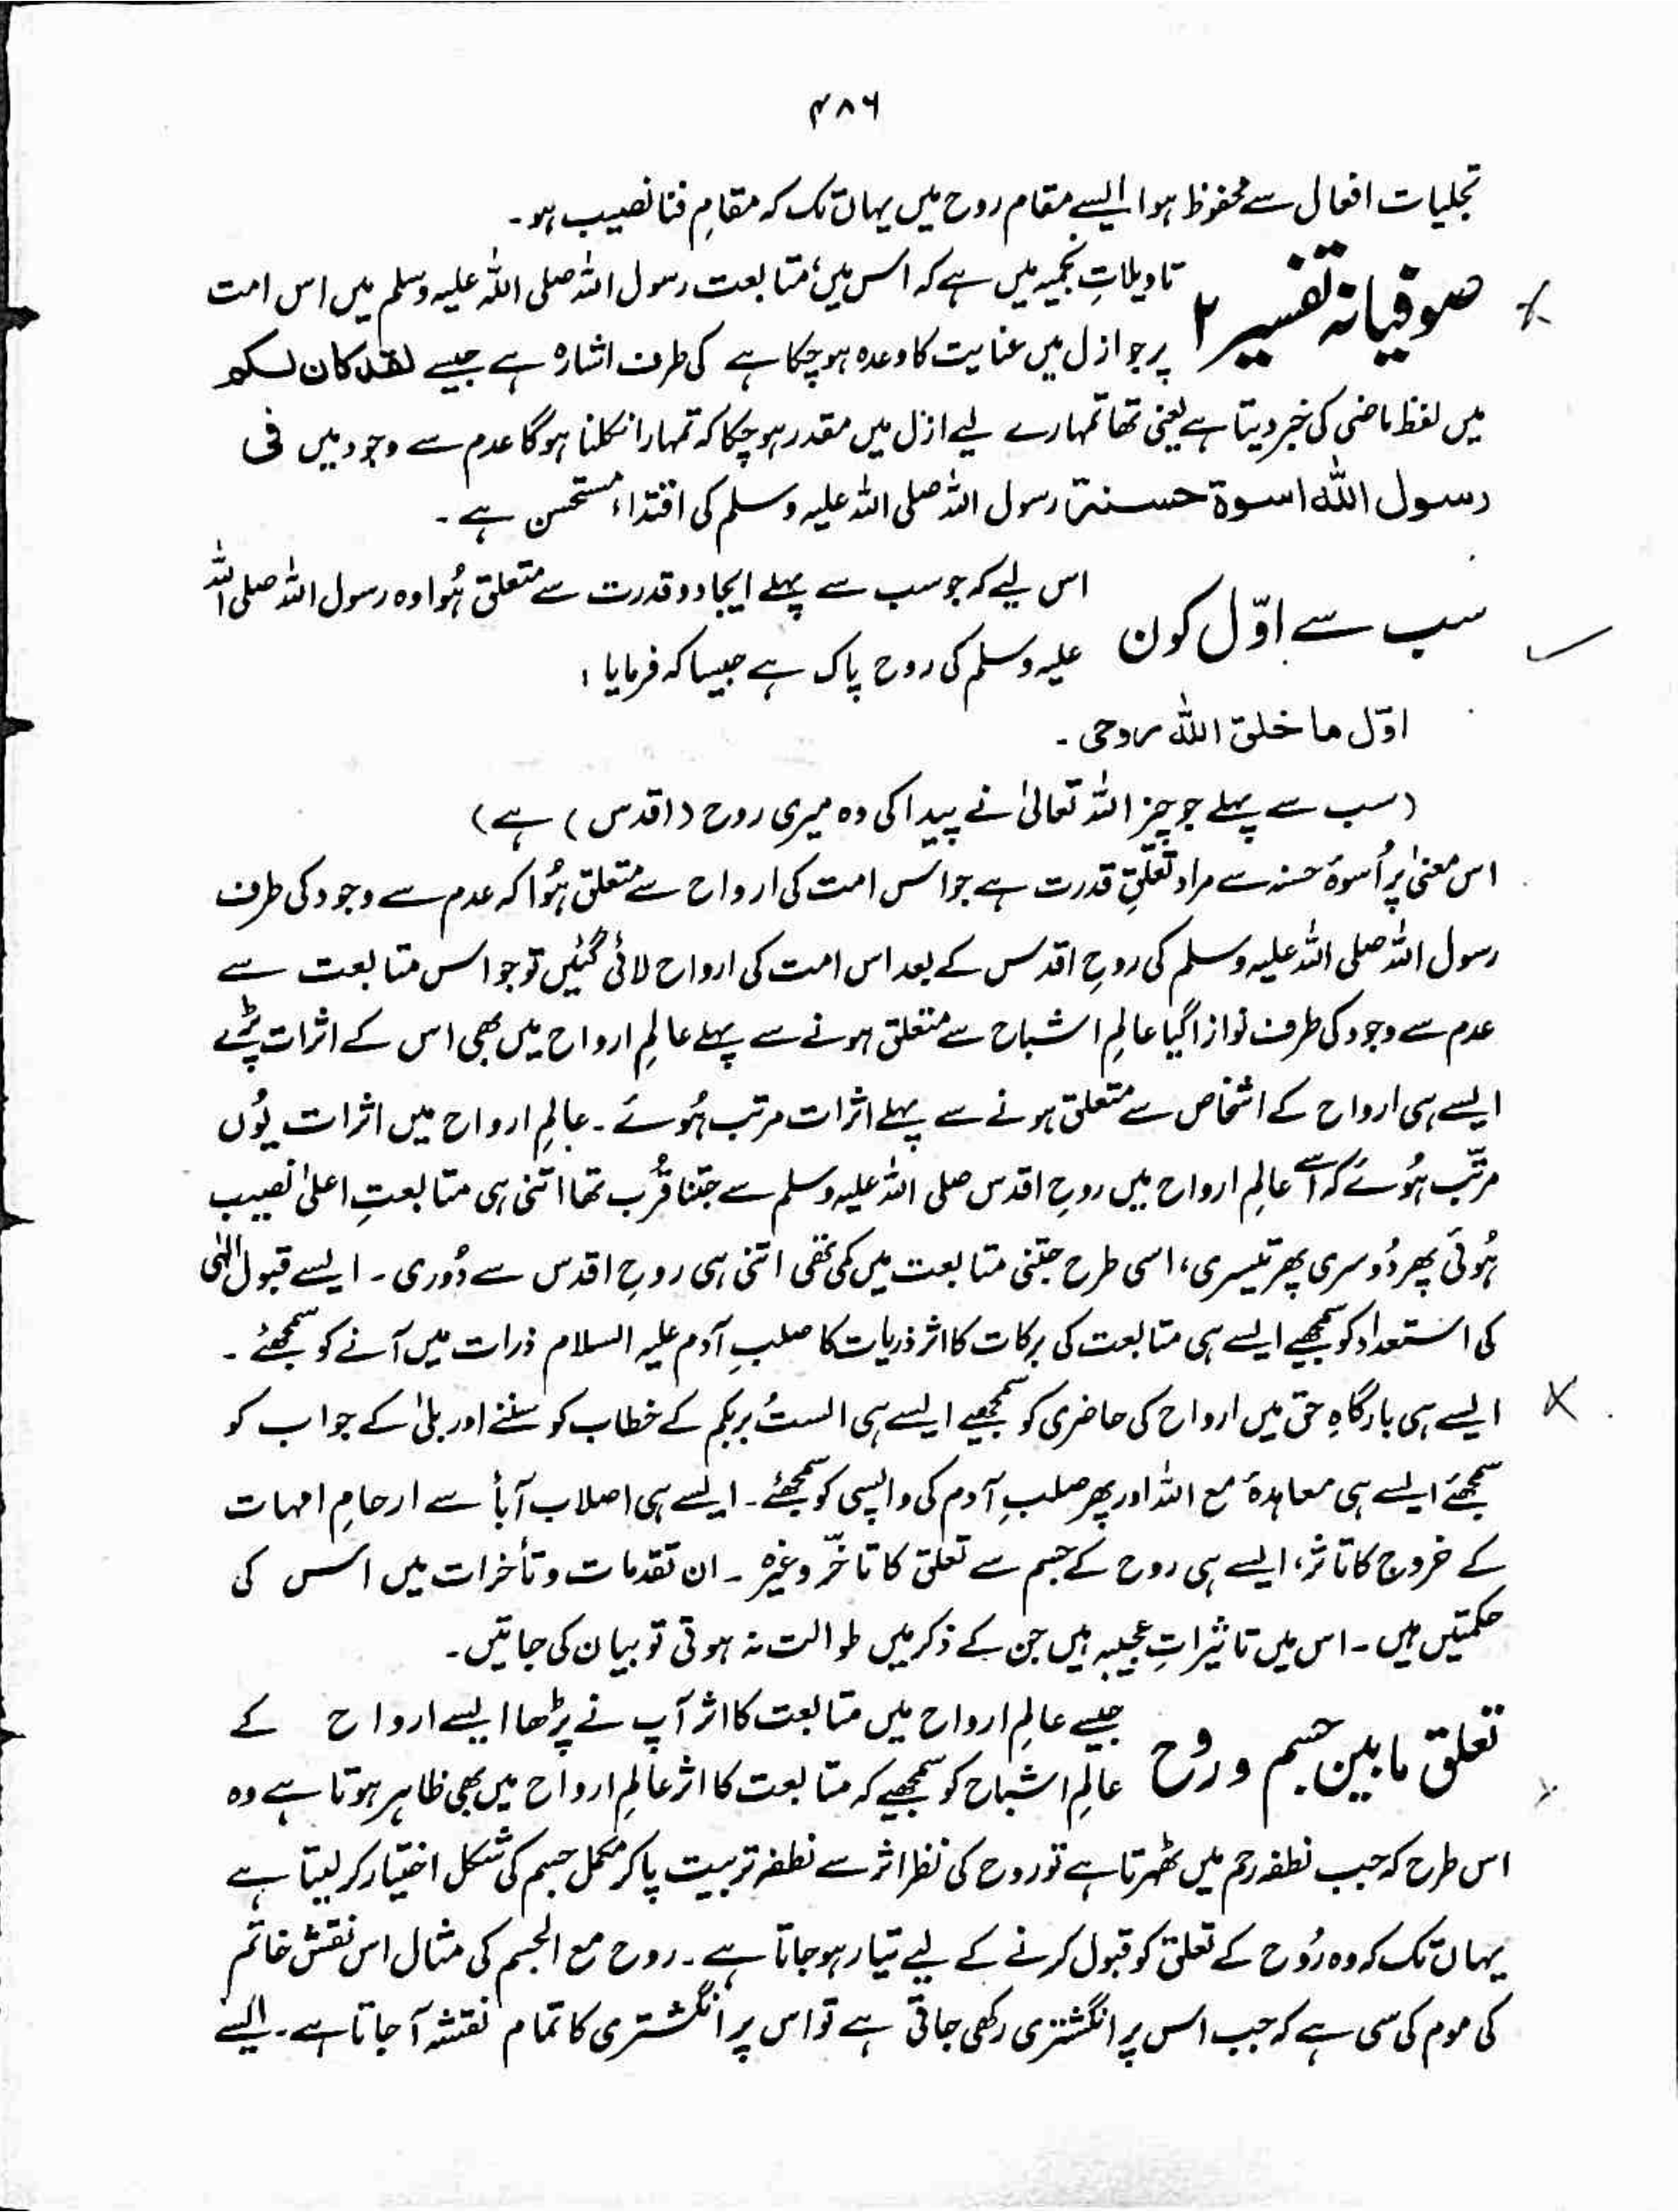 ۴۸۶
تجلیات افعال سے محفوظ ہوا ایسے مقام روح میں یہاں تک کہ مقامِ فنا نصیب ہو۔
صوفیانہ تفسیر ۲
تاویلاتِ نجمیہ میں ہے کہ اس میں متابعت رسول اللہ صلی اللہ علیہ وسلم میں اس امت
پر جو ازل میں عنایت کا وعدہ ہو چکا ہے کی طرف اشارہ ہے جیسے لقد کان لکم
میں لفظ ماضی کی خبر دیتا ہے یعنی تھا تمہارے لیے ازل میں مقدر ہو چکا کہ تمہارا نکلنا ہوگا عدم سے وجود میں فی
رسول اللہ اسوۃ حسنۃ رسول اللہ صلی اللہ علیہ وسلم کی اقتداء مستحسن ہے۔
سب سے اوّل کون
اس لیے کہ جو سب سے پہلے ایجاد و قدرت سے متعلق ہُوا وہ رسول اللہ صلی اللہ
علیہ وسلم کی روح پاک ہے جیسا کہ فرمایا :
اوّل ما خلق اللہ روحی ۔
(سب سے پہلے جو چیز اللہ تعالیٰ نے پیدا کی وہ میری روح (اقدس) ہے)
اس معنیٰ پر اُسوۂ حسنہ سے مراد تعلّقِ قدرت ہے جو اس امت کی ارواح سے متعلق ہُوا کہ عدم سے وجود کی طرف
رسول اللہ صلی اللہ علیہ وسلم کی روحِ اقدس کے بعد اس امت کی ارواح لائی گئیں تو جو اس متابعت سے
عدم سے وجود کی طرف نوازا گیا عالمِ اشباح سے متعلق ہونے سے پہلے عالمِ ارواح میں بھی اس کے اثرات پڑے
ایسے ہی ارواح کے اشخاص سے متعلق ہونے سے پہلے اثرات مرتب ہُوئے۔ عالمِ ارواح میں اثرات یُوں
مرتّب ہُوئے کہ اسے عالمِ ارواح میں روحِ اقدس صلی اللہ علیہ وسلم سے جتنا قُرب تھا اتنی ہی متابعتِ اعلیٰ نصیب
ہُوئی پھر دُوسری پھر تیسری، اسی طرح جتنی متابعت میں کمی تھی اتنی ہی روحِ اقدس سے دُوری۔ ایسے قبول الٰہی
کی استعداد کو سمجھیے ایسے ہی متابعت کی برکات کا اثر ذریات کا صلبِ آدم علیہ السلام ذرات میں آنے کو سمجھئے۔
ایسے ہی بارگاہِ حق میں ارواح کی حاضری کو سمجھیے ایسے ہی الستُ بربکم کے خطاب کو سننے اور بلیٰ کے جواب کو
سمجھئے ایسے ہی معاہدۂ مع اللہ اور پھر صلبِ آدم کی واپسی کو سمجھئے۔ ایسے ہی اصلاب آبأ سے ارحامِ امہات
کے خروج کا تاثر، ایسے ہی روح کے جسم سے تعلق کا تاخّر وغیرہ۔ ان تقدمات و تأخرات میں اس کی
حکمتیں ہیں۔ اس میں تاثیراتِ عجیبہ ہیں جن کے ذکر میں طوالت نہ ہوتی تو بیان کی جاتیں۔
تعلق مابین جسم و روح
جیسے عالمِ ارواح میں متابعت کا اثر آپ نے پڑھا ایسے ارواح کے
عالمِ اشباح کو سمجھیے کہ متابعت کا اثر عالمِ ارواح میں بھی ظاہر ہوتا ہے وہ
اس طرح کہ جب نطفہ رحم میں ٹھہرتا ہے تو روح کی نظر اثر سے نطفہ تربیت پا کر مکمل جسم کی شکل اختیار کر لیتا ہے
یہاں تک کہ وہ رُوح کے تعلق کو قبول کرنے کے لیے تیار ہو جاتا ہے۔ روح مع الجسم کی مثال اس نقش خاتم
کی موم کی سی ہے کہ جب اس پر انگشتری رکھی جاتی ہے تو اس پر انگشتری کا تمام نقشہ آ جاتا ہے۔ ایسے